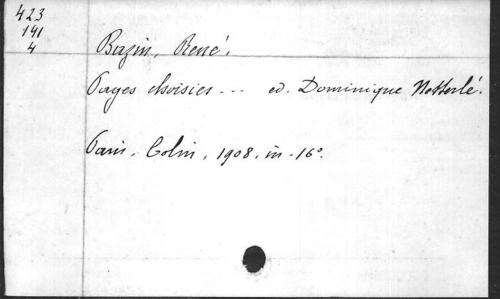 423
141
4
Bazin, René.
Pages choisies --- ed. Dominique Notterlé.
Paris, Colin, 1908, in-16°.